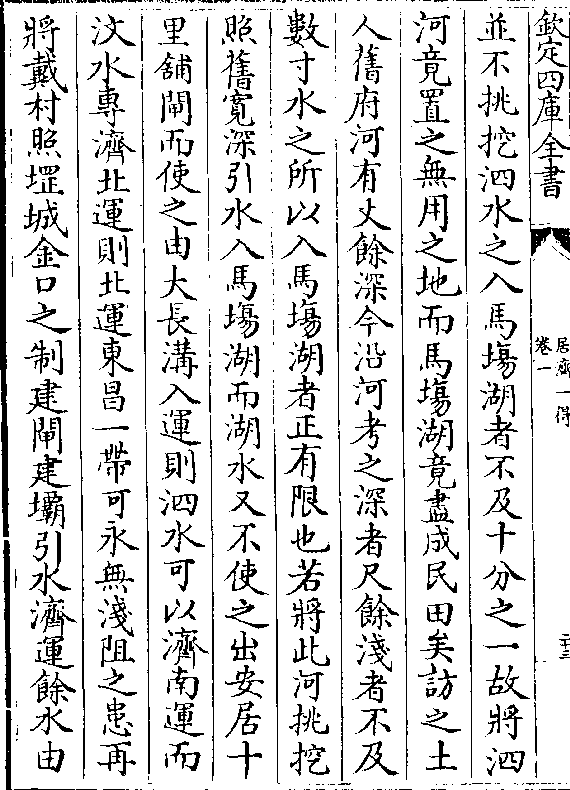 欽定四庫全書
居濟一得
卷一
二十三
並不挑挖泗水之入馬塲湖者不及十分之一故將泗
河竟置之無用之地而馬塲湖竟盡成民田矣訪之土
人舊府河有丈餘深今沿河考之深者尺餘淺者不及
數寸水之所以入馬塲湖者正有限也若將此河挑挖
照舊寛深引水入馬塲湖而湖水又不使之出安居十
里舖閘而使之由大長溝入運則泗水可以濟南運而
汶水專濟北運則北運東昌一帶可永無淺阻之患再
將戴村照堽城金口之制建閘建壩引水濟運餘水由